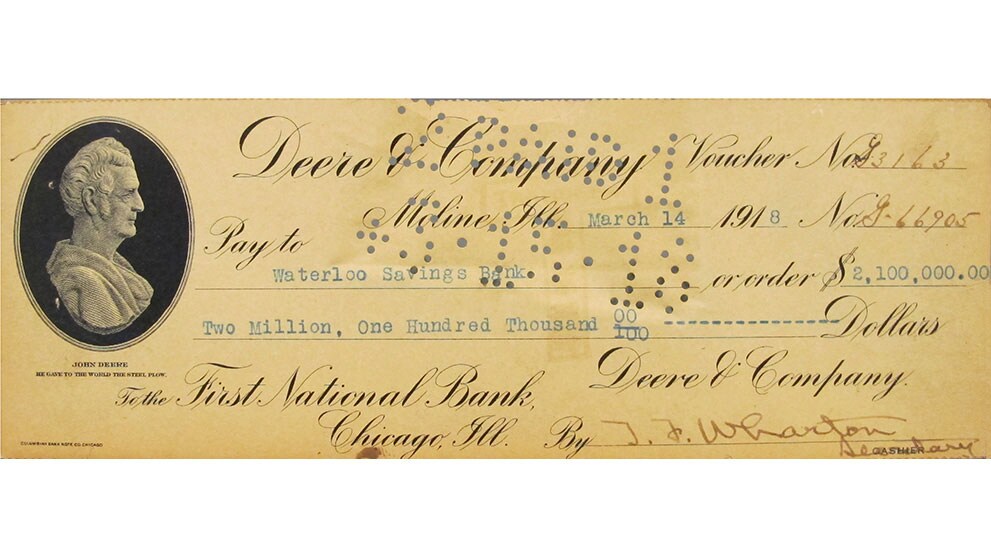 Deere & Company Voucher No. G3163
Moline, Ill. March 14 1918 No. G-66905
Pay to
Waterloo Savings Bank or order $2,100,000.00
Two Million, One Hundred Thousand 00/100 ---------------- Dollars
JOHN DEERE
HE GAVE TO THE WORLD THE STEEL PLOW.
Deere & Company.
To the First National Bank,
Chicago, Ill. By T. F. Wharton
CASHIER Secretary
COLUMBIAN BANK NOTE CO. CHICAGO